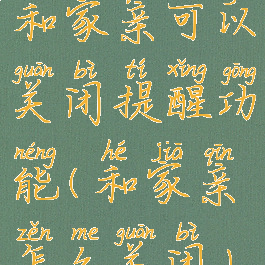 和家亲可以
guān bì tí xǐng gōng
关闭提醒功
néng hé jiā qīn
能(和家亲
zěn me guān bì
怎么关闭)